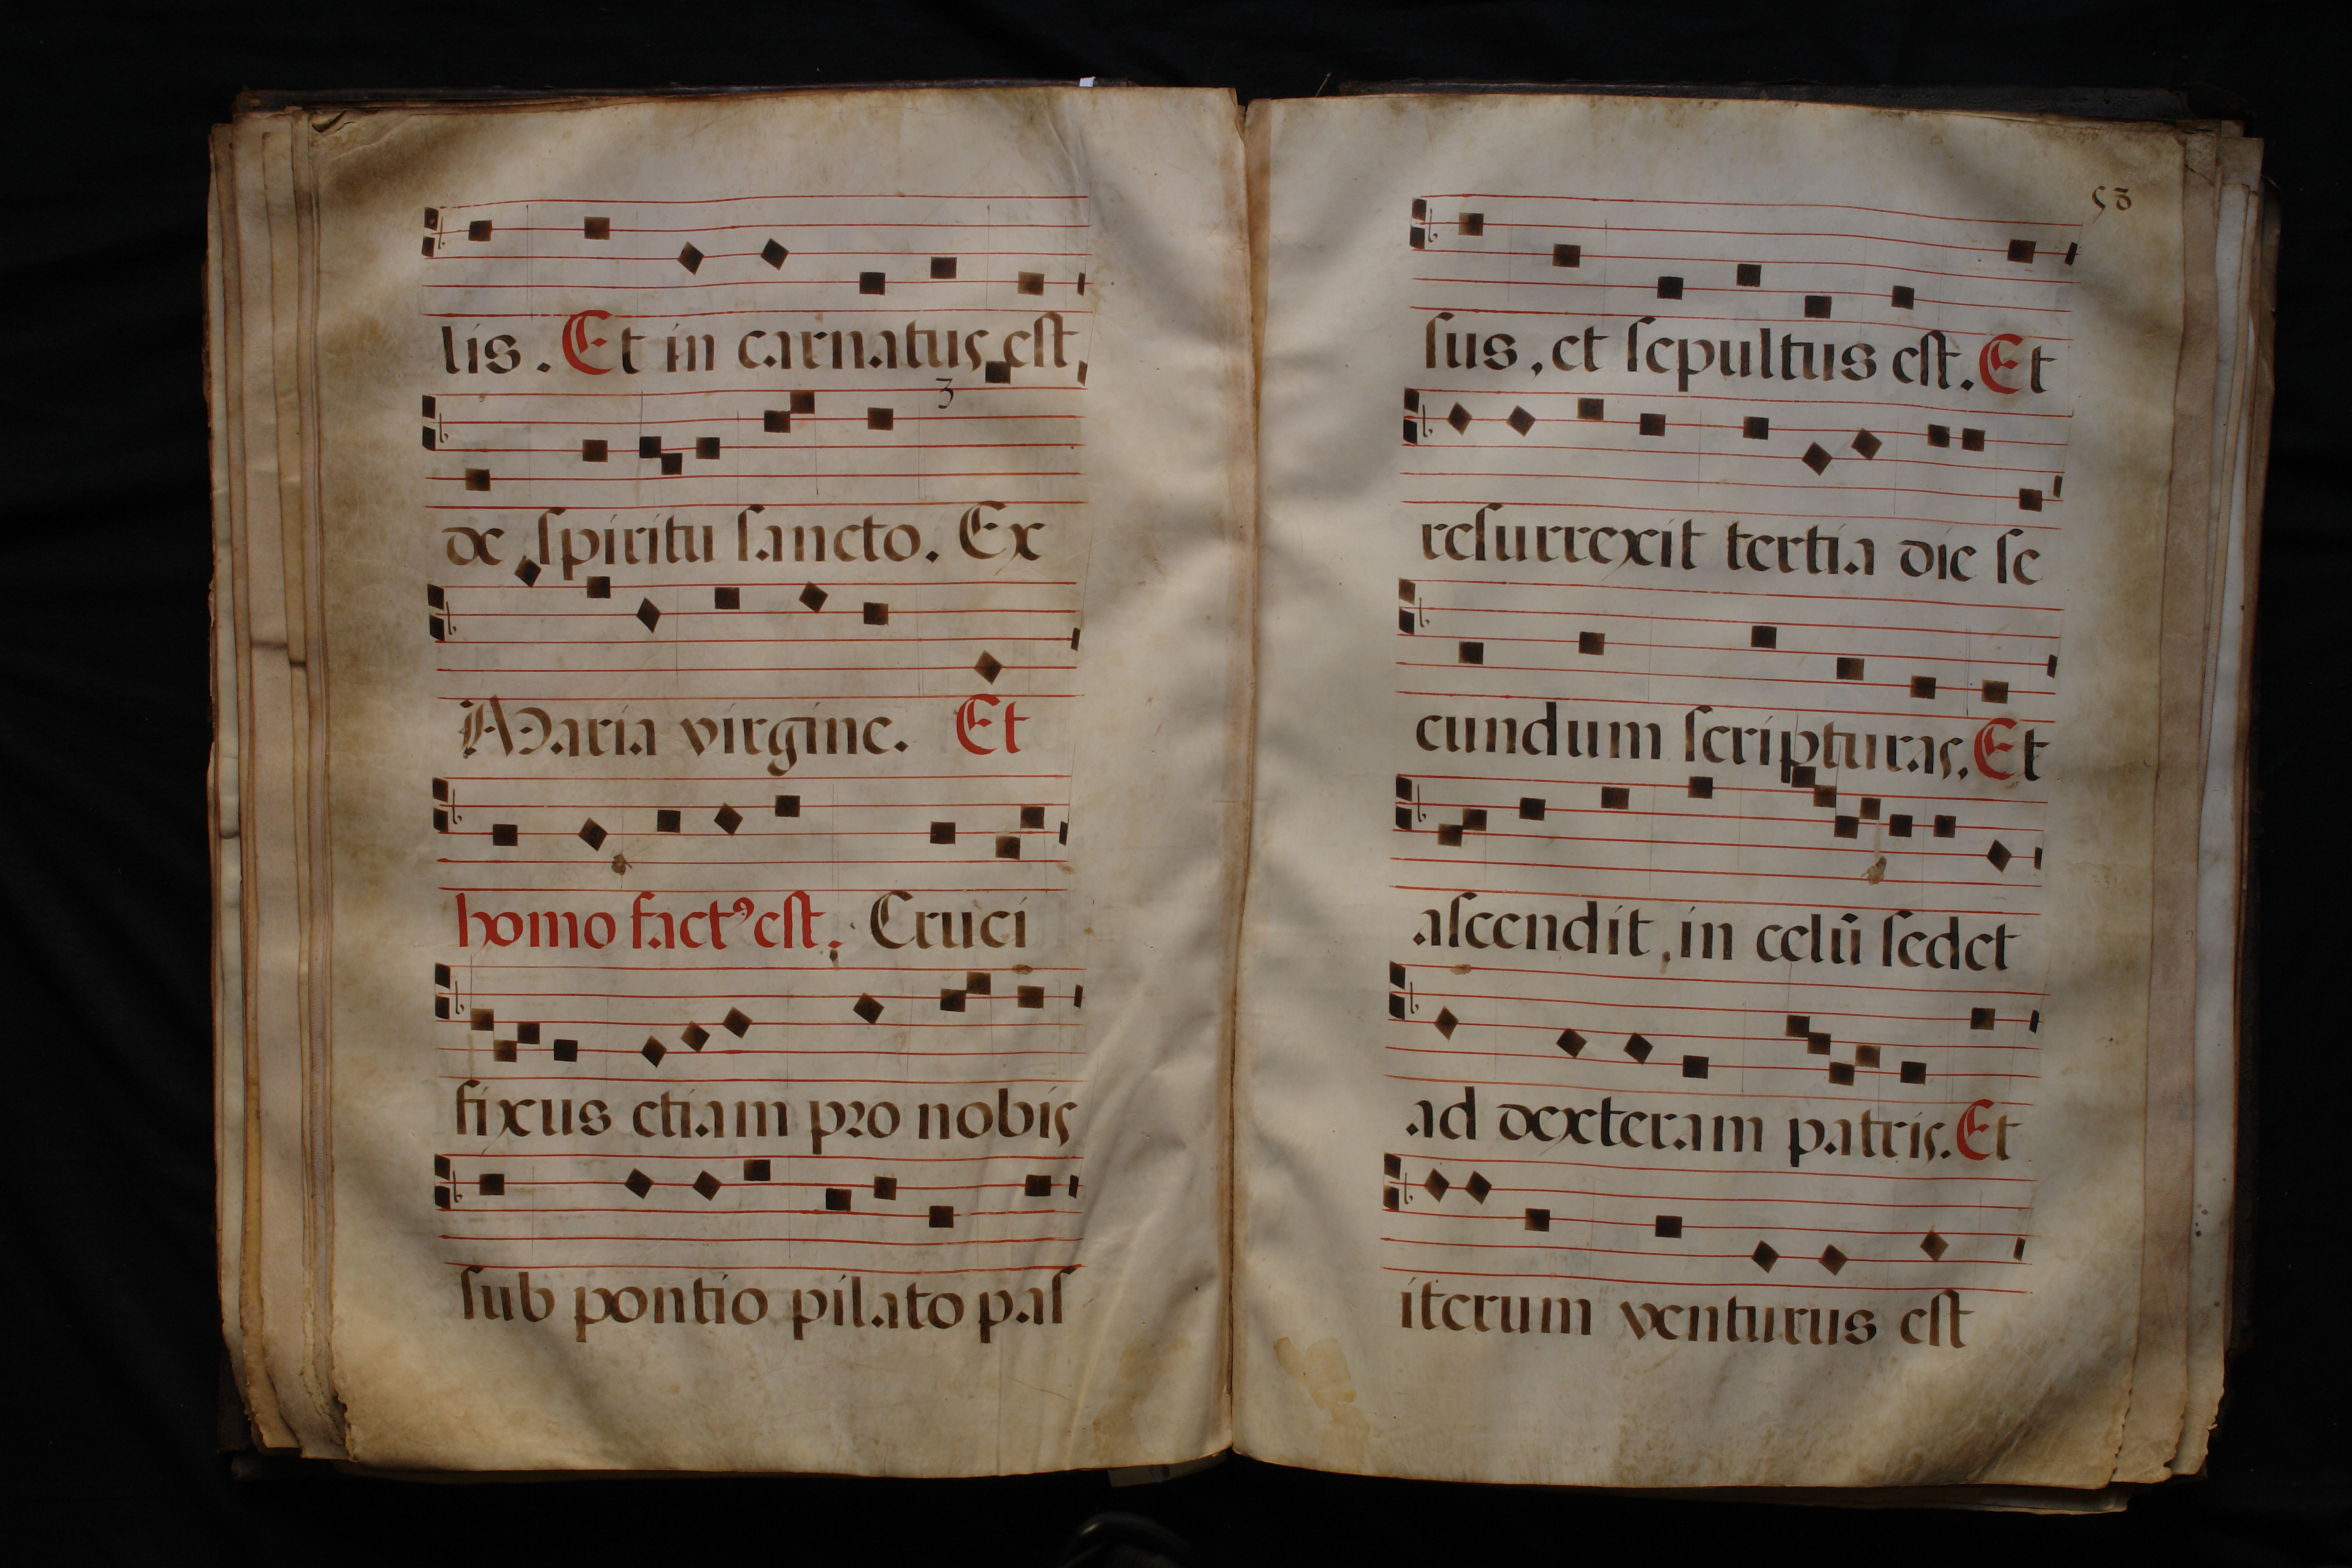 lis. Et in carnatus est,
3
de spiritu sancto. Ex
Maria virgine. Et
homo factꝰ est. Cruci
fixus etiam pro nobis
sub pontio pilato pas
53
sus, et sepultus est. Et
resurrexit tertia die se
cundum scripturas. Et
ascendit, in celũ sedet
ad dexteram patris. Et
iterum venturus est